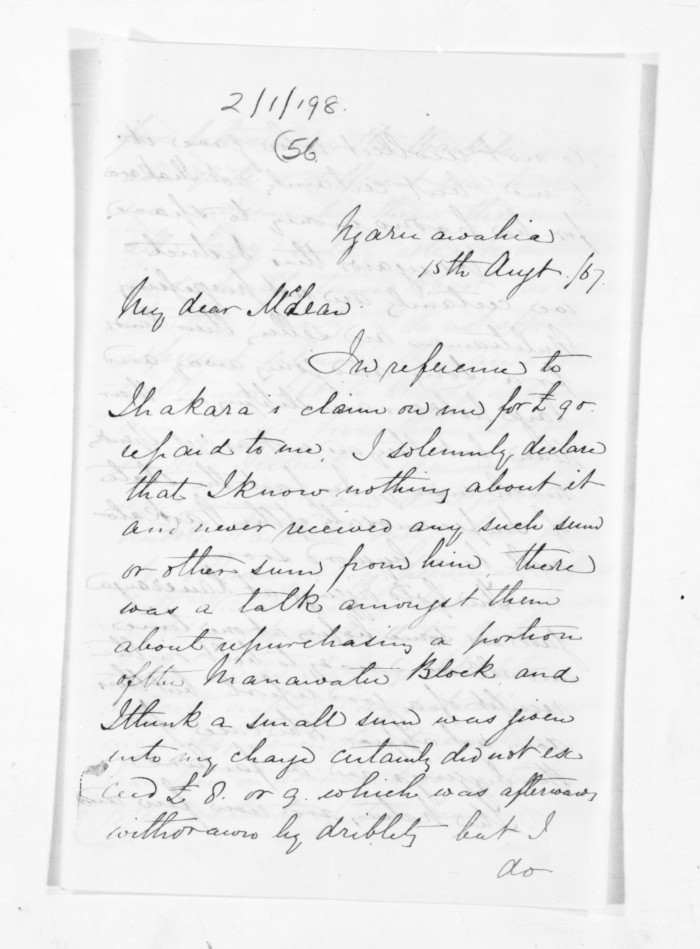 2/1/198.
(56.
Ngaruawahia
15th Augt. /67.
My dear McLean.
In reference to
Ihakara's claim on me for £90.
repaid to me, I solemnly declare
that I know nothing about it
and never received any such sum
or other sum from him there
was a talk amongst them
about repurchasing a portion
of the Manawatu Block, and
I think a small sum was given
into my charge certainly did not ex
ceed £8. or 9. which was afterwards
withdrawn by driblets but I
do